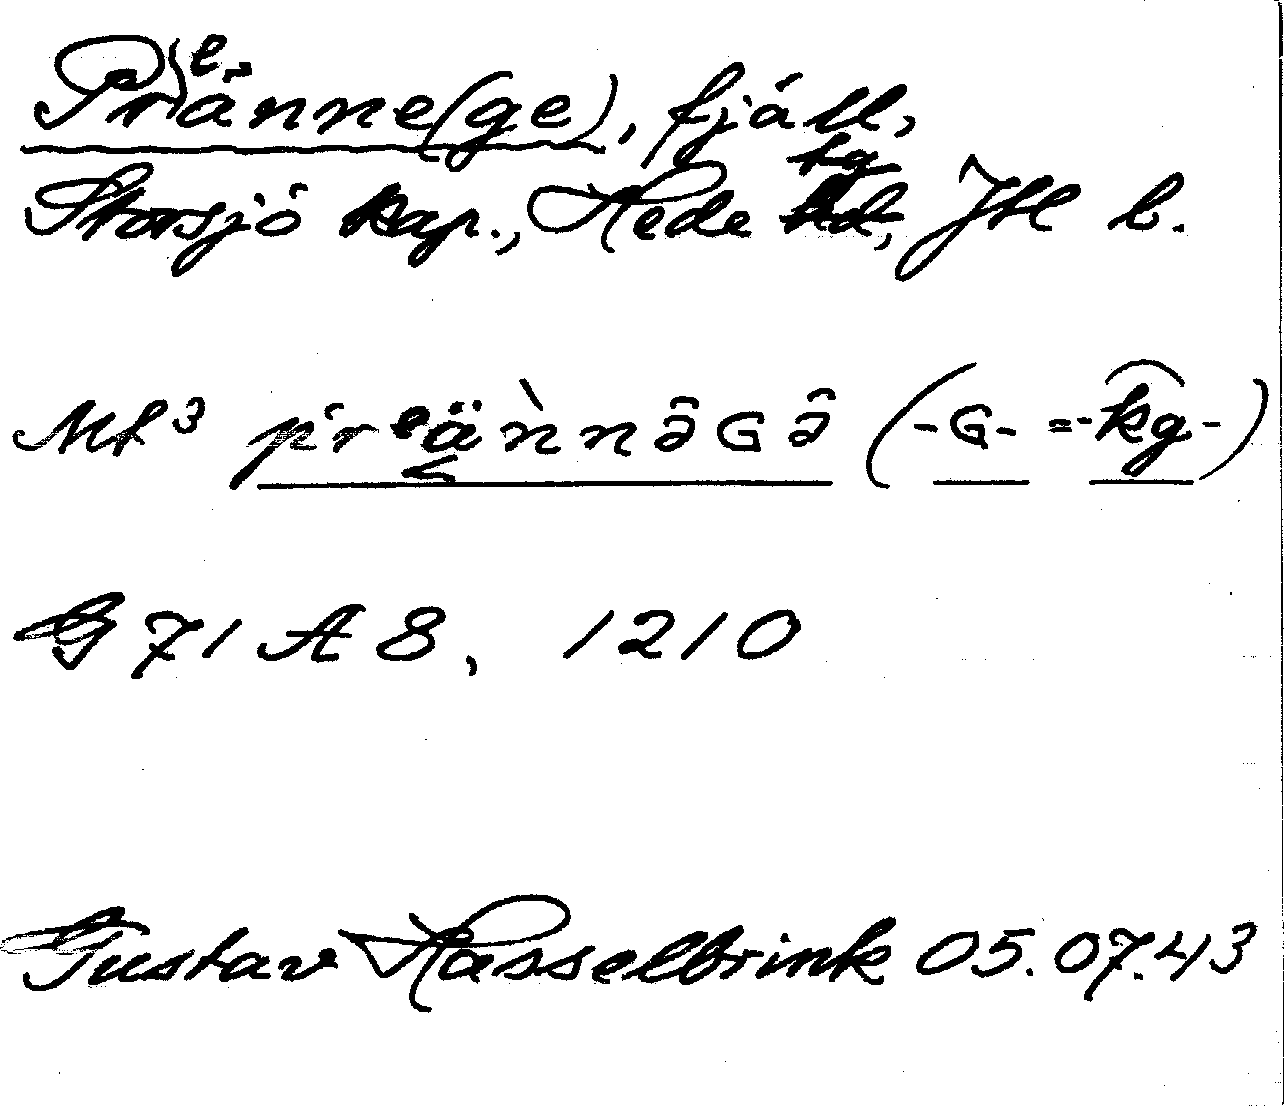 Preänne(ge), fjäll,
Storsjö kap., Hede tg, Jtl l.
Mf³ preä̀nnə̂Gə̂ (-G- = -k͡g-)
G 71 A 8, 1210
Gustav Hasselbrink 05.07.43